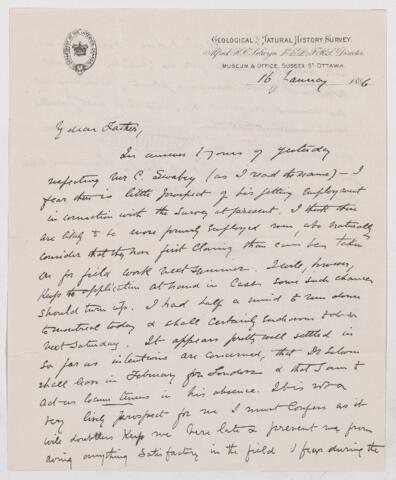 GEOLOGICAL & NATURAL HISTORY SURVEY
Alfred R. C. Selwyn L.L.D. F.R.S. Director.
MUSEUM & OFFICE, SUSSEX ST OTTAWA.
16 January 1886
My dear Father,
In answer to yours of yesterday
respecting Mr C. (as I read the name) — I
fear there is little prospect of his getting employment
in connection with the Survey at present. I think there
are likely to be more formerly employed men who naturally
consider that they have first claim than can be taken
on for field work next summer. I will, however,
keep the application at hand in case some such chance
should turn up. I had half a mind to run down
to Montreal today & shall certainly endeavour to do so
next Saturday. It appears pretty well settled in
so far as intentions are concerned, that Dr Selwyn
shall leave in February for London & that I am to
act as locum tenens in his absence. It is not a
very lively prospect for me I must confess as it
will doubtless keep me here late & prevent me from
doing anything satisfactory in the field I fear during the